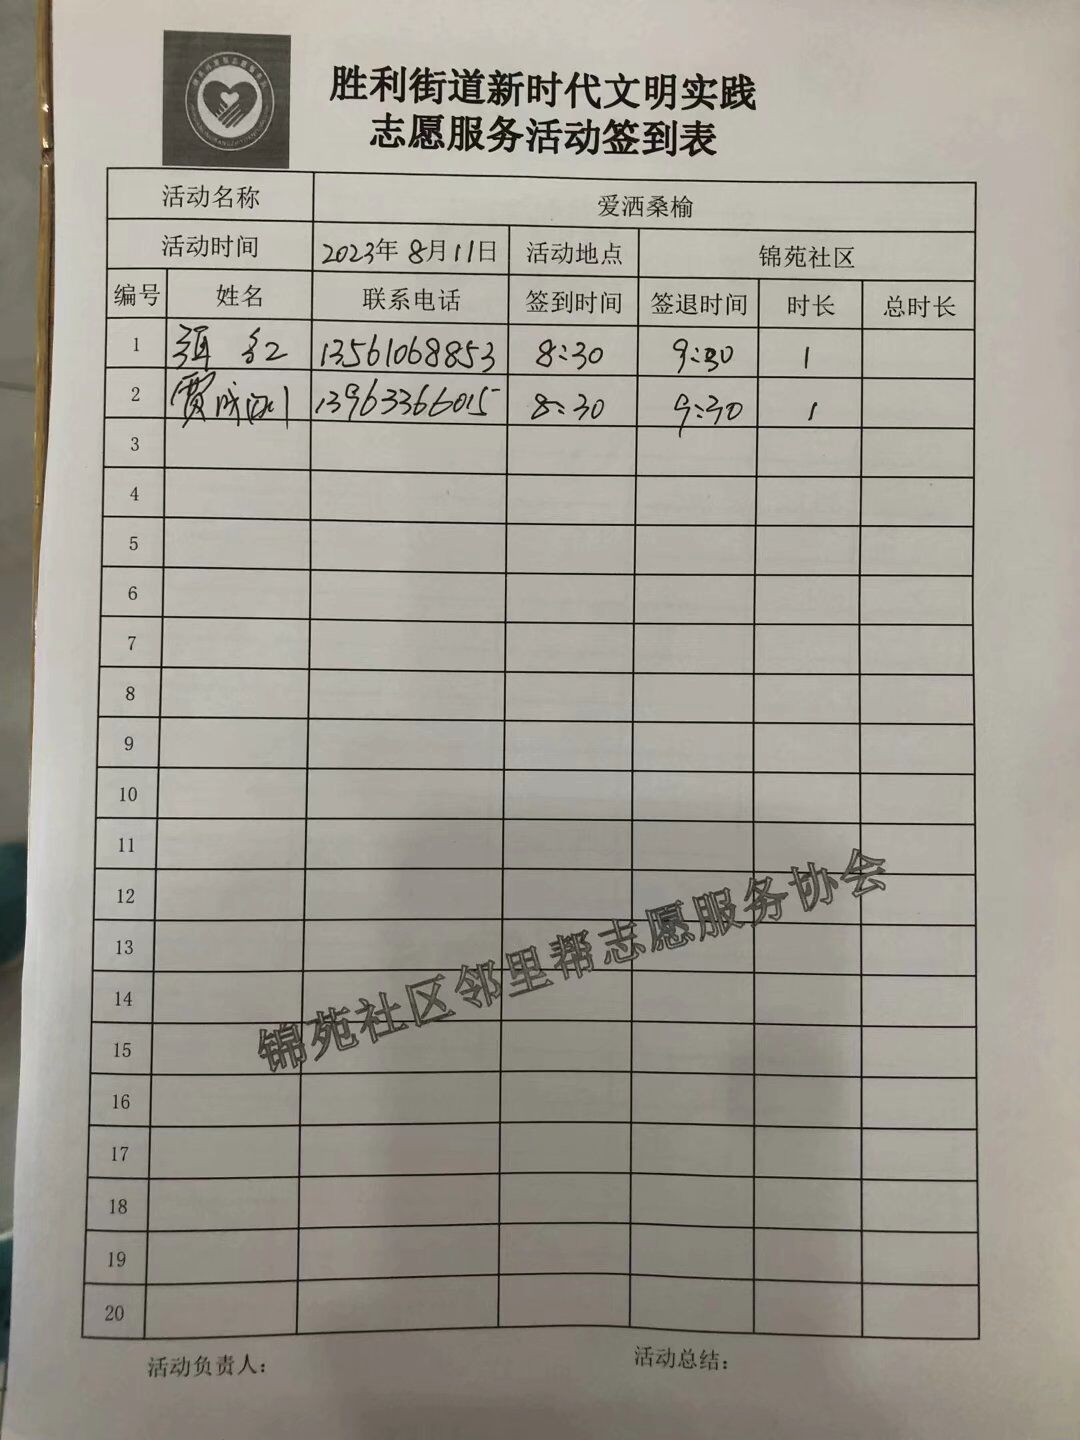 胜利街道新时代文明实践
志愿服务活动签到表
活动名称 爱洒桑榆
活动时间 2023年 8月11日 活动地点 锦苑社区
编号 姓名 联系电话 签到时间 签退时间 时长 总时长
1 红 13561068853 8:30 9:30 1
2 贾成刚 13963366015 8:30 9:30 1
3
4
5
6
7
8
9
10
11
12
13
14
15
16
17
18
19
20
锦苑社区邻里帮志愿服务协会
活动负责人： 活动总结：